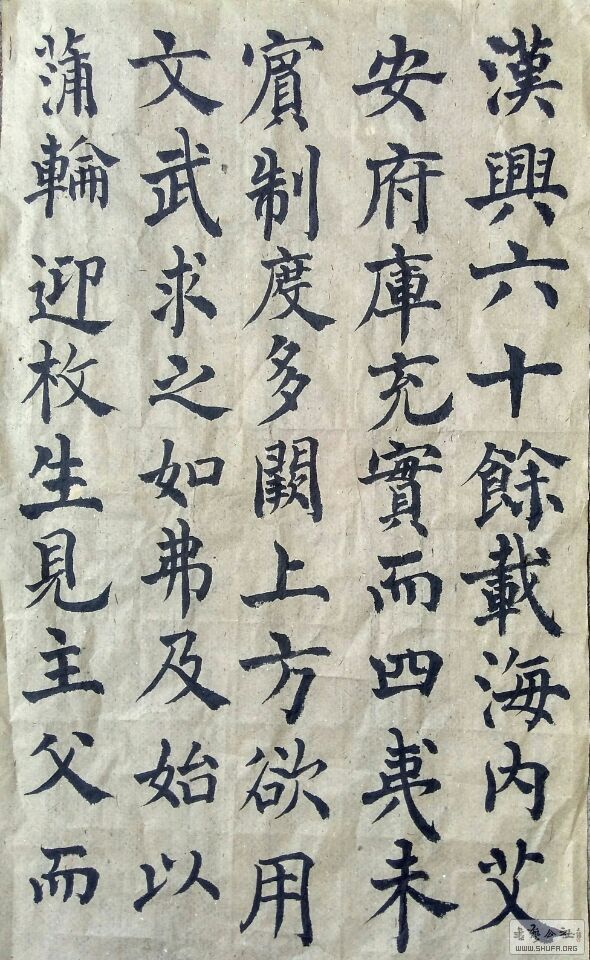 漢興六十餘載海内艾
安府庫充實而四夷未
賓制度多闕上方欲用
文武求之如弗及始以
蒲輪迎枚生見主父而
WWW.SHUFA.ORG